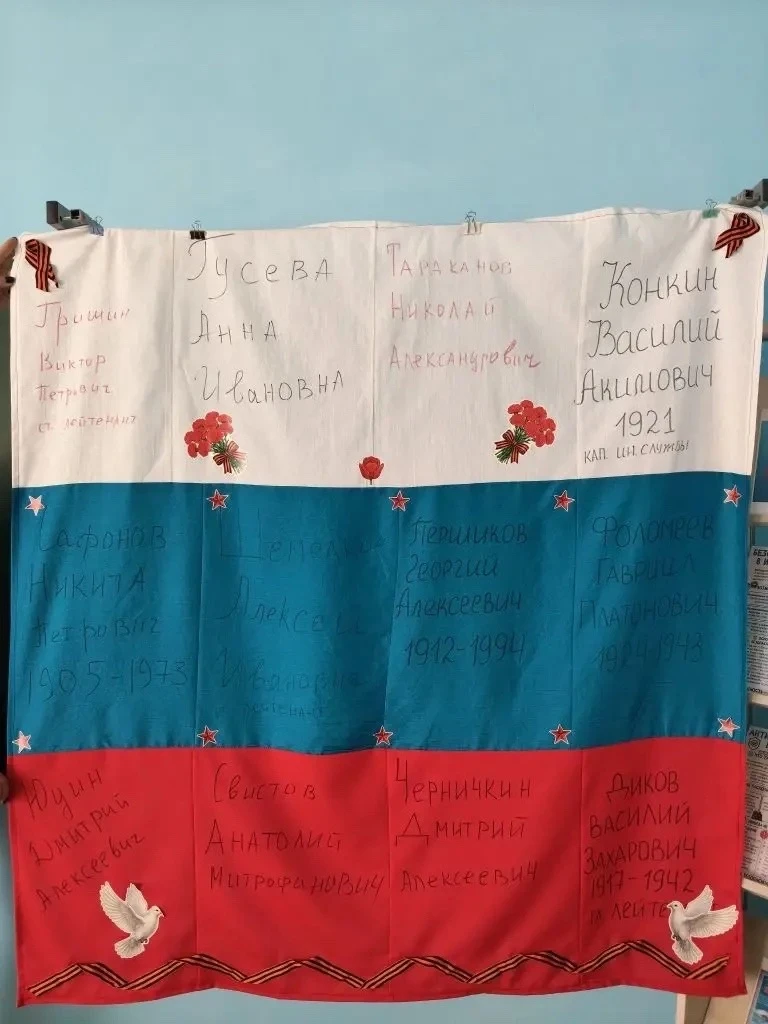 Гришин
Виктор
Петрович
ст. лейтенант
Гусева
Анна
Ивановна
Тараканов
Николай
Александрович
Конкин
Василий
Акимович
1921
КАП. ИН. СЛУЖБЫ
Сафонов
Никита
Петрович
1905-1973
Алексей
Иванович
лейтенант
Першиков
Георгий
Алексеевич
1912-1994
Фоломеев
Гавриил
Платонович
1904-1943
Юдин
Дмитрий
Алексеевич
Свистов
Анатолий
Митрофанович
Черничкин
Дмитрий
Алексеевич
ДИКОВ
ВАСИЛИЙ
ЗАХАРОВИЧ
1917-1942